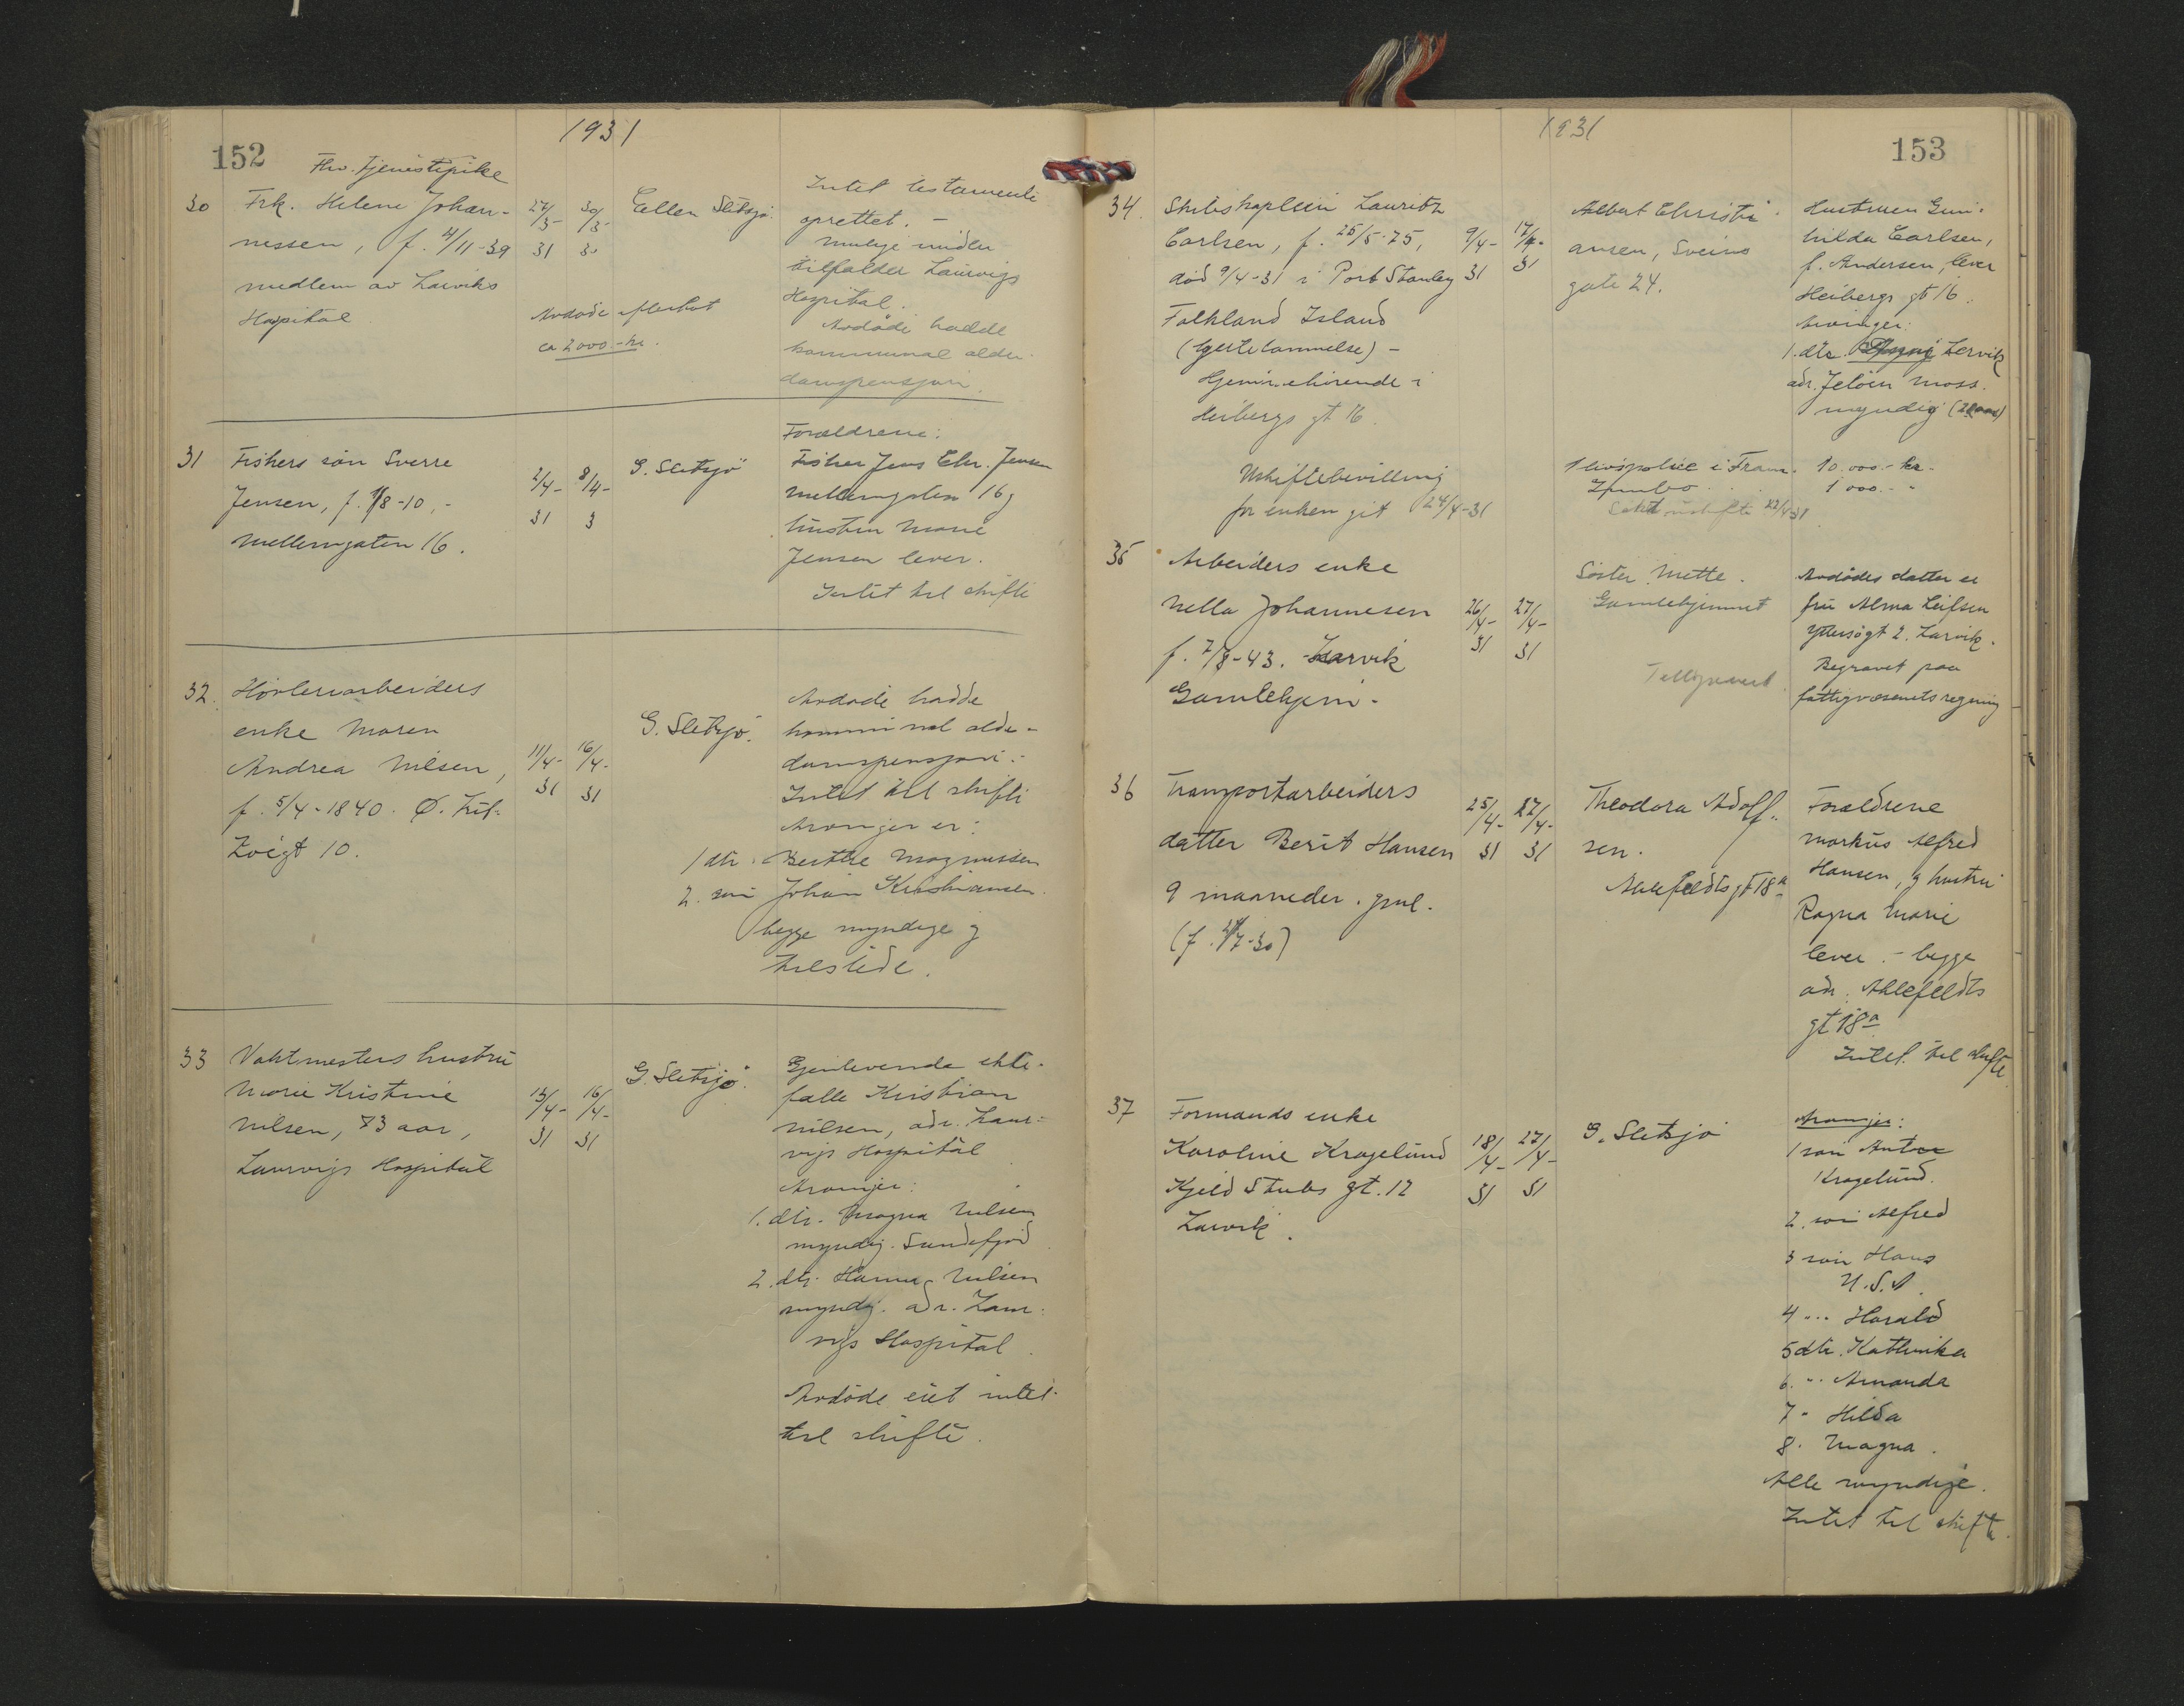 1931
152
Fhv. tjenestepike
30 Frk. Helene Johan-
nessen, f. 4/11-39
medlem av Larviks
Hospital
27/3-31 30/3-3
Avdøde efterlot
ca 2000.- kr.
Ellen Sletsjø.
Intet testamente
oprettet. -
Mulige midler
tilfalder Laurvigs
Hospital.
Avdøde hadde
kommunal alder-
domspensjon.
31 Fiskers søn Sverre
Jensen, f. /8-10,-
Mellemgaten 16.
2/4-31 8/4-3
G. Sletsjø
Forældrene:
Fisker Jens Chr. Jensen
Mellemgaten 16 og
hustru Marie
Jensen lever.
Intet til skifte
32. Høvleriarbeiders
enke Maren
Andrea Nilsen,
f. 5/4-1840. Ø.
gt 10.
11/4-31 16/4-31
G. Sletsjø.
Avdøde hadde
kommunal alder-
domspensjon.-
Intet til skifte
Arvinger er:
1 dtr. Berthe Magnussen
2. søn Johan Kristiansen.
begge myndige og
tilstede.
33 Vaktmesters hustru
Marie Kristine
Nilsen, 73 aar,
Laurvigs Hospital
13/4-31 16/4-31
G. Sletsjø.
Gjenlevende ekte-
fælle Kristian
Nilsen, adr. Laur-
vigs Hospital
Arvinger:
1. dtr. Magna Nilsen
myndig. Sandefjord
2. dtr. Hanna Nilsen
myndig. adr. Laur-
vigs Hospital.
Avdøde eiet intet
til skifte.
1931
153
34. Skibskaptein Lauritz
Carlsen, f. 25/5-75,
død 9/4-31 i Port Stanley
Falkland Island
(hjertelammelse) -
Hjemmehørende i
Heibergs gt 16.
9/4-31 17/4-31
Albert Christi-
ansen, Sveins
gate 24.
Hustruen Gun-
hilda Carlsen,
f. Andersen, lever
Heibergs gt 16.
Arvinger:
1. dtr. Lervik
adr. Jeløen Moss.
myndig
Uskiftebevilling
for enken git 24/4-31
1 livspolice i Fram. 10.000.- kr-
Innbo 1 000.- "
Søkt uskifte 22/4 31
35 Arbeiders enke
Nella Johannesen
f. 7/8-43. Larvik
Gamlehjem.
26/4-31 27/4-31
Søster Mette.
Gamlehjemmet
Avdødes datter er
fru Alma Leifsen
Ytersøgt 2. Larvik.
Begravet paa
fattigvæsenets regning
36 Transportarbeiders
datter Berit Hansen
9 maaneder. gml.
(f. /7-30)
25/4-31 27/4-31
Theodora Adolf-
sen.
Ahlefeldts gt 18a
Forældrene
Markus Alfred
Hansen, og hustru
Ragna Marie
lever. - begge
adr. Ahlefeldts
gt 18a
Intet til skifte.
37 Formands enke
Karoline Kragelund
Kjeld Stubs gt. 12
Larvik.
18/4-31 27/4-31
G. Sletsjø
Arvinger:
1 søn Anton
Kragelund.
2. søn Alfred
3 søn Hans
U.S.A.
4 " Harald
5 dtr. Kathinka
6. " Amanda
7 " Hilda
8. Magna.
Alle myndige.
Intet til skifte.